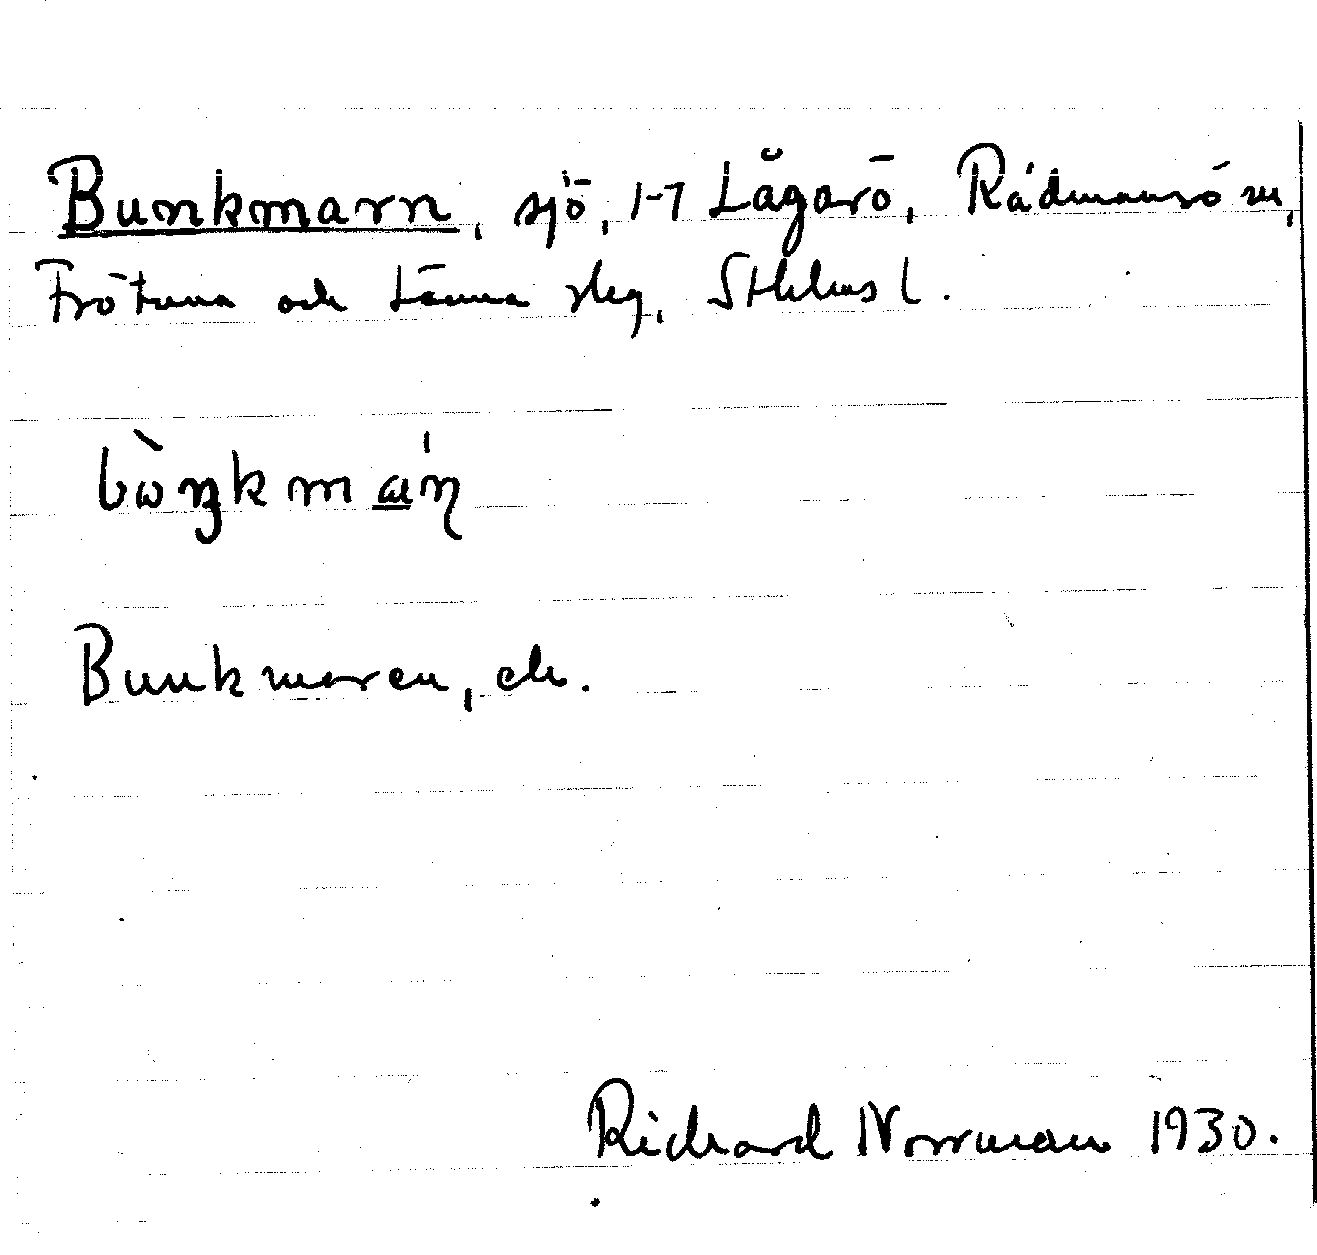 Bunkmarn, sjö, 1-7 Lågarö, Rådmansö sn,
Frötuna och Länna slg, Sthlms l.
bὼŋkma̲'ɳ
Bunkmaren, ek.
Richard Norrman 1930.